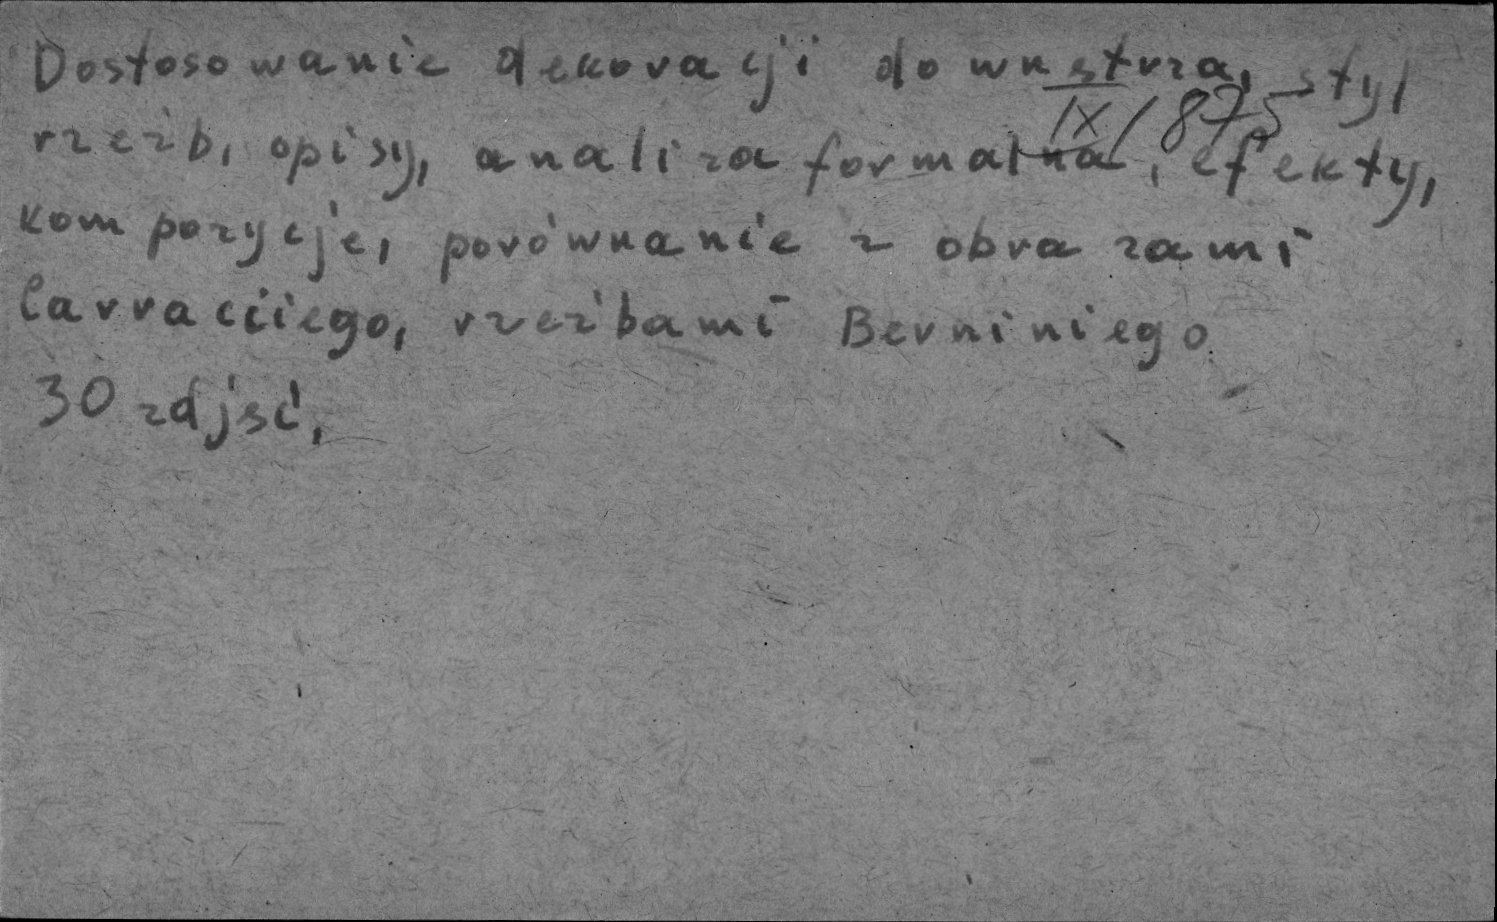 Dostosowanie dekoracji do wnętrza, styl
IX/875
rzeźb, opisy, analiza formalna, efekty,
kompozycje, porównanie z obrazami
Carracciego, rzeźbami Berniniego.
30 zdjęć.